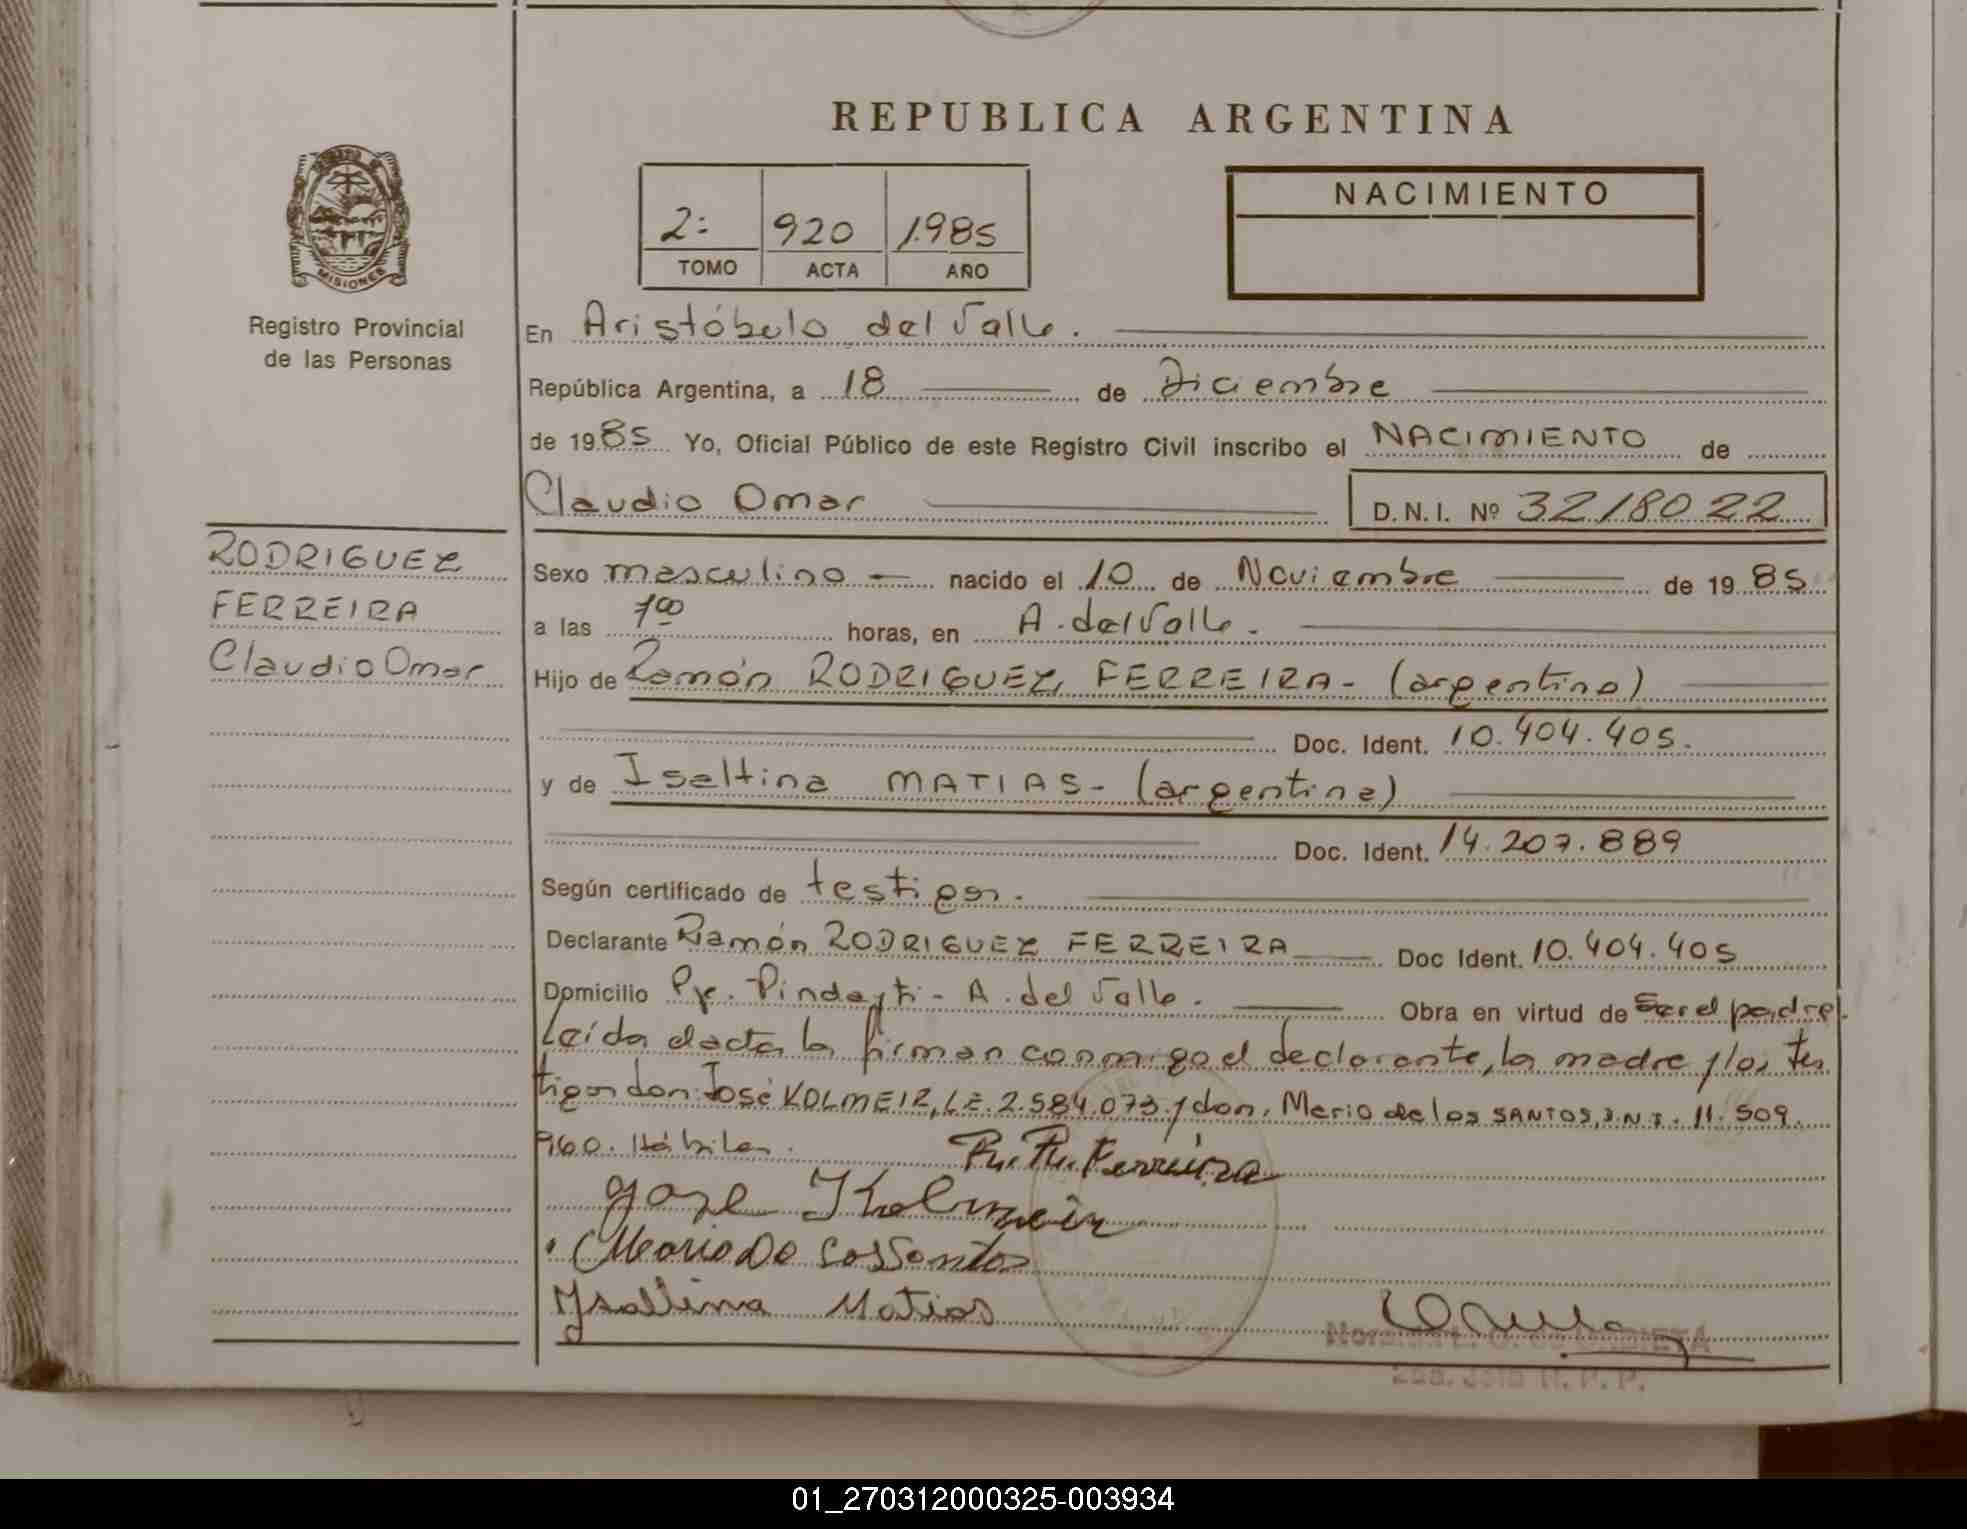 REPUBLICA ARGENTINA
MISIONES
Registro Provincial
de las Personas
2: 920 1985
TOMO ACTA AÑO
NACIMIENTO
En Aristóbulo del Valle.
República Argentina, a 18 de Diciembre
de 1985 Yo, Oficial Público de este Registro Civil inscribo el NACIMIENTO de
Claudio Omar D.N.I. Nº 32180 22
RODRIGUEZ
FERREIRA
Claudio Omar
Sexo masculino nacido el 10 de Noviembre de 1985
a las 7⁰⁰ horas, en A. del Valle.
Hijo de Ramón RODRIGUEZ FERREIRA- (argentino)
Doc. Ident. 10.404.405.
y de Iseltina MATIAS- (argentina)
Doc. Ident. 14.207.889
Según certificado de testigos.
Declarante Ramón RODRIGUEZ FERREIRA Doc Ident. 10.404.405
Domicilio Pje. Pindayti - A. del Valle. Obra en virtud de ser el padre.
Leída el acta la firman conmigo el declarante, la madre y los tes
tigos don: José KOLMEIR, L.E. 2.584.073 y don. Mario de los SANTOS, D.N.I. 11.509.
960. Hábiles.
R. R. Ferreira
Jose Kolmeir
Mario De Los Santos
Ysaltina Matias
2da. Jefa R. P. P.
01_270312000325-003934